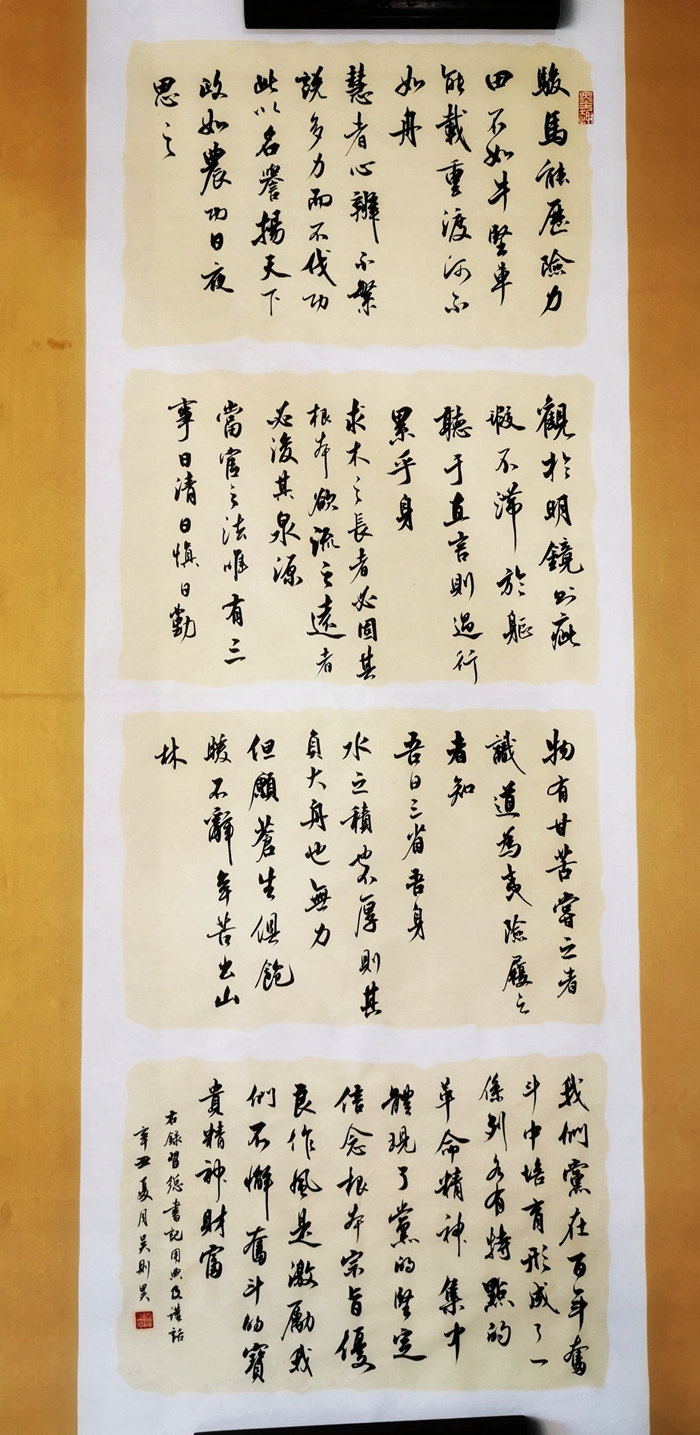 駿馬能歷險力
田不如牛堅車
能載重渡河不
如舟
慧者心辯不繁
說多力而不伐功
此以名譽揚天下
政如農功日夜
思之
觀於明鏡則疵
瑕不滯於軀
聽于直言則過行
累乎身
求木之長者必固其
根本欲流之遠者
必浚其泉源
當官之法唯有三
事曰清曰慎曰勤
物有甘苦嘗之者
識道為夷險履之
者知
吾日三省吾身
水之積也不厚則其
負大舟也無力
但願蒼生俱飽
暖不辭辛苦出山
林
我們黨在百年奮
斗中培育形成了一
係列各有特點的
革命精神集中
體現了黨的堅定
信念根本宗旨優
良作風是激勵我
們不懈奮斗的寶
貴精神財富
右錄習總書記用典及講話
辛丑夏月吳則昊